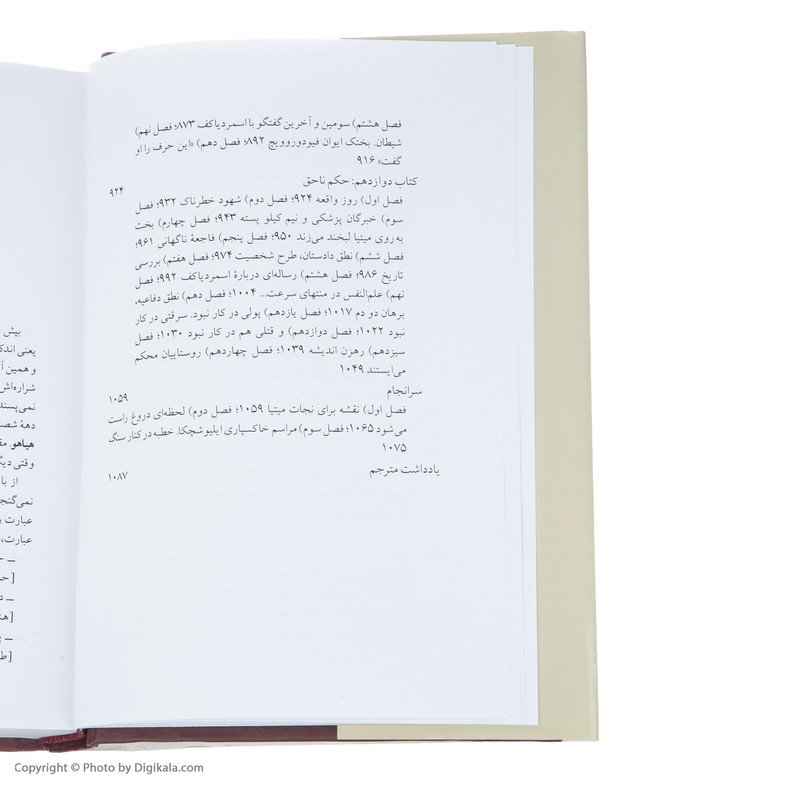 فصل هشتم) سومین و آخرین گفتگو با اسمردیاکف ۸۷۳؛ فصل نهم)
شیطان. بختک ایوان فیودوروویچ ۸۹۲؛ فصل دهم) «این حرف را او
گفت» ۹۱۶
کتاب دوازدهم: حکم ناحق ۹۲۴
فصل اول) روز واقعه ۹۲۴؛ فصل دوم) شهود خطرناک ۹۳۲؛ فصل
سوم) خبرگان پزشکی و نیم کیلو پسته ۹۴۳؛ فصل چهارم) بخت
به‌روی میتیا لبخند می‌زند ۹۵۰؛ فصل پنجم) فاجعهٔ ناگهانی ۹۶۱؛
فصل ششم) نطق دادستان، طرح شخصیت ۹۷۴؛ فصل هفتم) بررسی
تاریخ ۹۸۶؛ فصل هشتم) رساله‌ای دربارهٔ اسمردیاکف ۹۹۲؛ فصل
نهم) علم‌النفس در منتهای سرعت... ۱۰۰۴؛ فصل دهم) نطق دفاعیه،
برهان دو دم ۱۰۱۷؛ فصل یازدهم) پولی در کار نبود. سرقتی در کار
نبود ۱۰۲۲؛ فصل دوازدهم) و قتلی هم در کار نبود ۱۰۳۰؛ فصل
سیزدهم) رهزن اندیشه ۱۰۳۹؛ فصل چهاردهم) روستاییان محکم
می‌ایستند ۱۰۴۹
سرانجام ۱۰۵۹
فصل اول) نقشه برای نجات میتیا ۱۰۵۹؛ فصل دوم) لحظه‌ای دروغ راست
می‌شود ۱۰۶۵؛ فصل سوم) مراسم خاکسپاری ایلیوشچکا. خطبه در کنار سنگ
۱۰۷۵
یادداشت مترجم ۱۰۸۷
بیش
یعنی اندک
و همین
شراره‌اش
نمی‌پسند
دههٔ شصت
هیاهو.
وقتی دیگ
از
نمی‌گنجد
عبارت
عبارت،
Copyright © Photo by Digikala.com